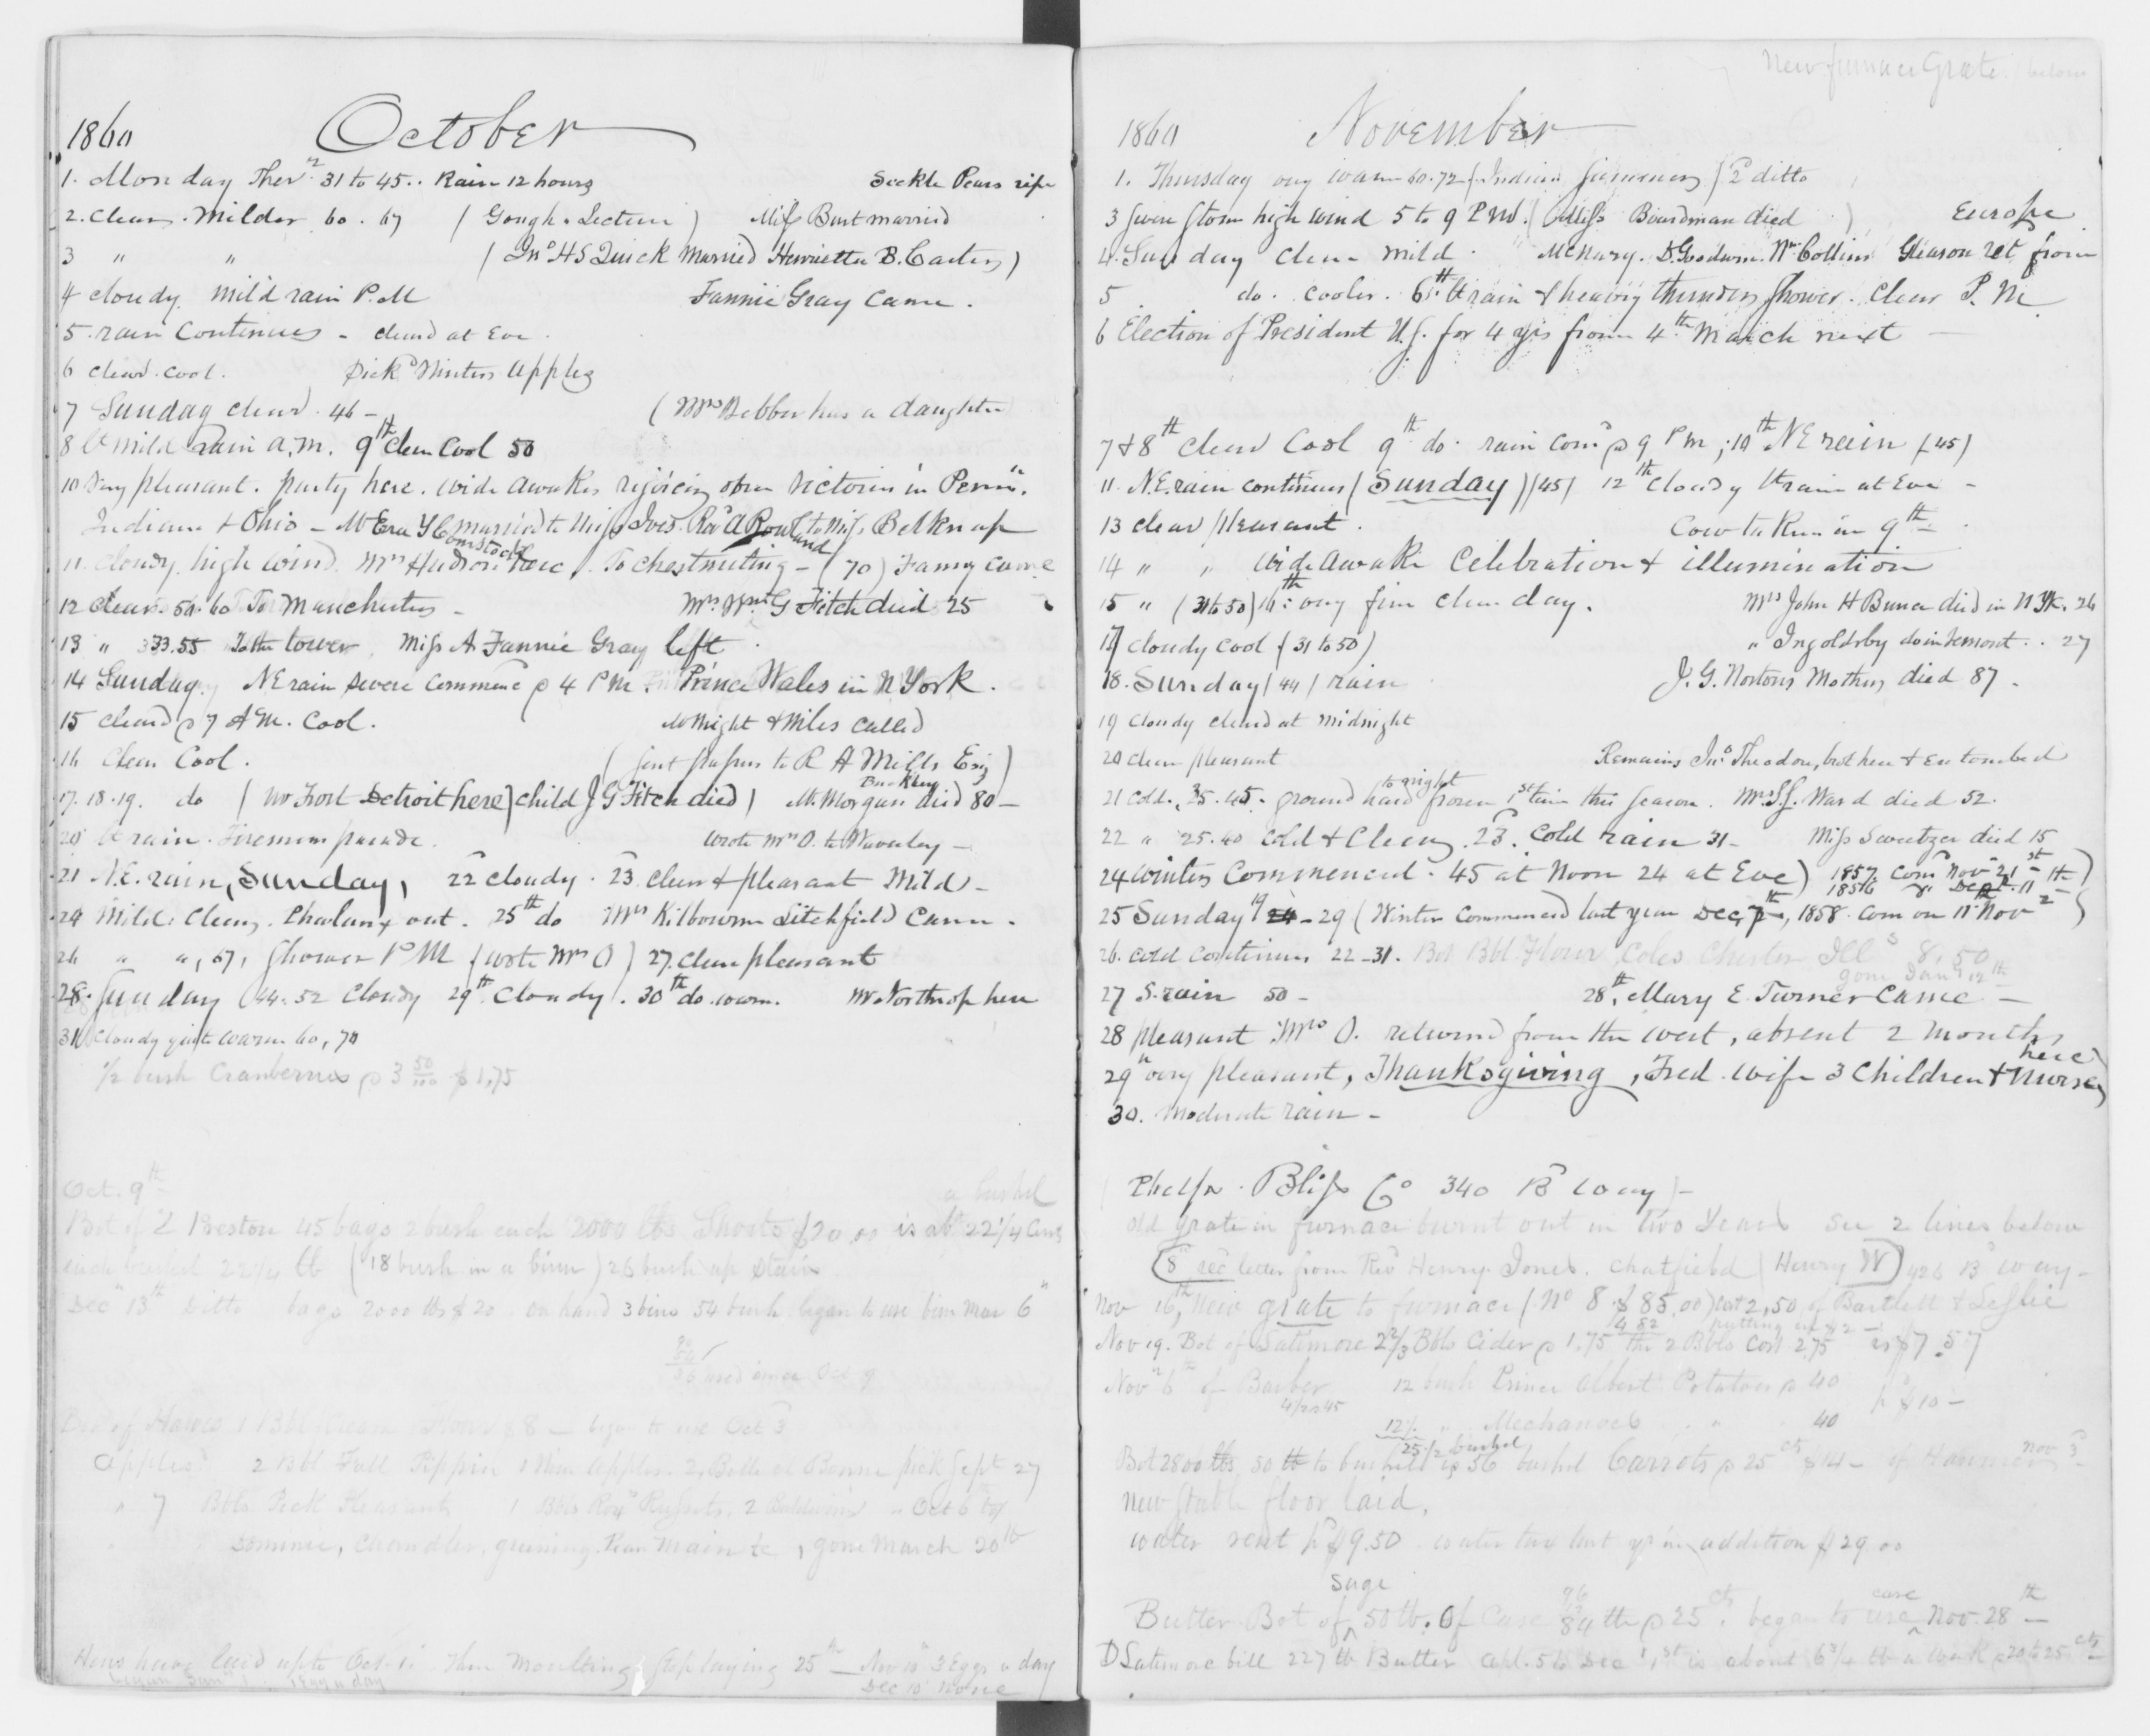 1860 October
1. Monday Ther. 31 to 45.. Rain 12 hours Seckle Pears ripe
2. Clear. Milder 60. 67 (Gough. Lecture) Miss Burt married
3 " " (Jno H S Quick Married Henrietta B. Carter)
4 cloudy. mild rain P.M Fannie Gray Came.
5. rain Continues - cleard at Eve.
6 clear. cool. Pickd Winter Apples
7 Sunday clear. 46 - (Mrs Bebber has a daughter
8 mild rain A.M. 9th Clear Cool 50
10 Very pleasant. party here. Wide Awakes rejoicing over Victories in Penn.
Indiana & Ohio - Mr Comstock married to Miss Ives. Revd A Rowland to Miss Belknap
11. Cloudy. high wind. Mrs Hudson here. To Chestnutting - (70) Fanny came
12 Clear. 50. 60 To Manchester - Mrs Wm G Fitch died 25
13 " 33.55 To the tower. Miss A Fannie Gray left.
14 Sunday. NE rain severe commencd @ 4 PM. Prince Wales in N York.
15 cleard @ 7 AM. Cool. & Miles Called
16 Clear Cool. (sent papers to R A Mills Esq)
17. 18. 19. do (Mr Frost Detroit here) child J G Fitch died) Mr Morgan Buckley died 80 -
20 rain. Firemens parade. Wrote Mrs O. to Waverley -
21 N.E. rain, Sunday, 22d cloudy. 23d clear & pleasant Mild -
24 Mild: Clear. out. 25th do Mrs Kilbourn Litchfield Came.
26 " ", 67, Shower PM (wrote Mrs O) 27. clear pleasant
28. Sunday (44: 52 Cloudy 29th Cloudy. 30th do. warm. Mr Northrop here
31 Cloudy quite warm 60, 70
1/2 bush Cranberries @ 3 50/100 $1,75
Oct. 9th a bushel
Bot of Z Preston 45 bags 2 bush each 2000 lbs Shorts $20,00 is abt 22 1/4 Cents
each bushel 22 1/4 lb (18 bush in a binn) 26 bush up Stairs
Decr 13th Ditto bags 2000 lbs $20. on hand 3 bins 54 bush began to use binn Mar 6"
used since Oct 9
Bot of Hawes 1 Bbl Flour $8 - began to use Oct 3d
Apples 2 Bbl Fall Pippin 1 Apples. 2 Bbls pick Sept 27
" 7 Bbls Peck Pleasants 1 Bbls Roxy Russets. 2 Baldwins " Oct 6
Dominie, Chandler, greening &c, gone March 20th
Hens have laid up to Oct. 1. then Moulting, Stop laying 25th - Nov 10" 3 Eggs a day
began Jany 1. 1 Egg a day Dec 10 none
New furnace Grate (below
1860 November
1. Thursday very warm 60.72 (Indian Summer) 2d ditto
3 Severe Storm high wind 5 to 9 PM. (Miss Boardman died) Europe
4. Sunday Clear mild. McNary. D. Goodwin. Wm Collins Gleason ret from
5 do. cooler. 6th rain & heavy thunder Shower. Clear P.M
6 Election of President U.S. for 4 yrs from 4th March next -
7 & 8th Clear Cool 9th do. rain comd @ 9 PM; 10th NE rain (45)
11. N.E. rain continues (Sunday) (45) 12th Cloudy rain at Eve -
13 clear pleasant. Cow taken in 9th.
14 " " Wide Awake Celebration & illumination
15 " (31 to 50) 16th: very fine clear day. Mrs John H Bunce died in N Yk. 26
17 Cloudy Cool (31 to 50) " Ingoldsby do in Vermont.. 27
18. Sunday (44) rain J. G. Nortons Mother died 87.
19 Cloudy cleard at midnight
20 clear pleasant Remains Jno. Theodore, brot here & Entombed
21 Cold. 35. 45. ground hard frozen to night 1st time this season. Mrs S.S. Ward died 52.
22 " 25.40 Cold & Clear. 23d. Cold rain 31 - Miss Sweetzer died 15
24 Winter Commenced. 45 at Noon 24 at Eve) 1857. Comd Nov 21st
1856 " Dec 11th
25 Sunday 19 - 29 (Winter Commenced last year Dec. 7th, 1858. Com on 11th Nov)
26. Cold Continues 22-31. Bot Bbl. Flour Coles Chester Ill $ 8.50
gone Jany 12th
27 S. rain 50 - 28th. Mary E. Turner Came -
28 pleasant Mrs O. returnd from the west, absent 2 months
29" very pleasant, Thanksgiving, Fred. wife 3 Children & Nurse here)
30. Moderate rain -
(Phelps. Bliss Co 340 Bdway) -
Old grate in furnace burnt out in Two Years See 2 lines below
8 recd letter from Revd Henry Jones. Chatfield (Henry W) 426 Bdway -
Nov 16th, New grate to furnace (No 8 $85.00) Cost 2,50 of Bartlett & Leslie
putting in $2 -
Nov 19. Bot of Latimore 2 2/3 Bbls Cider @ 1.75 4 82 the 2 Bbls Cost 2.75 is $7.57
Nov 26th of Barber 12 bush Prince Albert Potatoes @ 40 pd $10 -
12 1/2 " Mechanocs " " 40
25 1/2 bushel
Bot 2800 lbs 50 lb to bushell is 56 bushel Carrots @ 25 cts $14 - Nov 3d
New Stable floor laid.
water rent pd $9.50. water tax last yr in addition $29 00
Butter Bot of Sage 50 lb. Of Case 84 lb @ 25 cts. began to use case Nov. 28th -
D Latimore bill 227 lb Butter Apl. 5 to Dec 1st is about 6 3/4 lb a week @ 20 to 25 cts